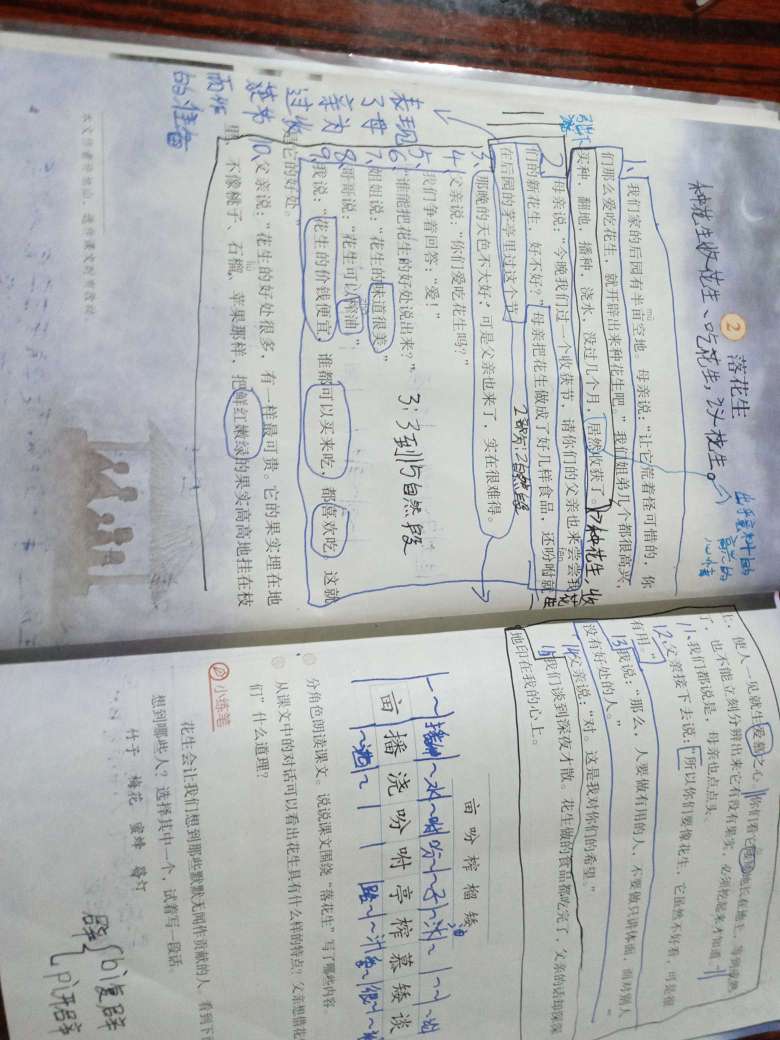 2 落花生
种花生收花生、吃花生,议花生。
出乎意料的
高兴的
心情
mǔ
1、我们家的后园有半亩空地。母亲说:“让它荒着怪可惜的,你
们那么爱吃花生,就开辟出来种花生吧。”我们姐弟几个都很高兴,
买种,翻地,播种,浇水,没过几个月,居然收获了。 种花生 收
2、母亲说:“今晚我们过一个收获节,请你们的父亲也来尝尝我
们的新花生,好不好?”母亲把花生做成了好几样食品,还吩咐就
在后园的茅亭里过这个节。
2部分:2自然段
3、那晚的天色不大好,可是父亲也来了,实在很难得。
4、父亲说:“你们爱吃花生吗?”
5、我们争着回答:“爱!”
6、“谁能把花生的好处说出来?”
3:3到15自然段
7、姐姐说:“花生的味道很美。”
8、哥哥说:“花生可以榨油。”
9、我说:“花生的价钱便宜,谁都可以买来吃,都喜欢吃。这就
是它的好处。”
10、父亲说:“花生的好处很多,有一样最可贵。它的果实埋在地
liú
里,不像桃子、石榴、苹果那样,把鲜红嫩绿的果实高高地挂在枝
表现
了母
亲为
过收
获节
而作
的准备
本文作者许地山,选作课文时有改动。
上,使人一见就生爱慕之心。你们看它矮矮地长在地上,等到成熟
了,也不能立刻分辨出来它有没有果实,必须挖起来才知道。”
11、我们都说是,母亲也点点头。
12、父亲接下去说:“所以你们要像花生,它虽然不好看,可是很
有用。”
13、我说:“那么,人要做有用的人,不要做只讲体面,而对别人
没有好处的人。”
14、父亲说:“对。这是我对你们的希望。”
15、我们谈到深夜才散。花生做的食品都吃完了,父亲的话却深深
地印在我的心上。
亩 吩 榨 榴 矮
油
亩 播 浇 吩 咐 亭 榨 慕 矮 谈
分角色朗读课文。说说课文围绕“落花生”写了哪些内容
从课文中的对话可以看出花生具有什么样的特点?父亲想借花
们”什么道理?
小练笔
花生会让我们想到那些默默无闻作贡献的人。看到下
想到哪些人?选择其中一个,试着写一段话
竹子 梅花 蜜蜂 路灯
辟
bì复辟
pì开辟